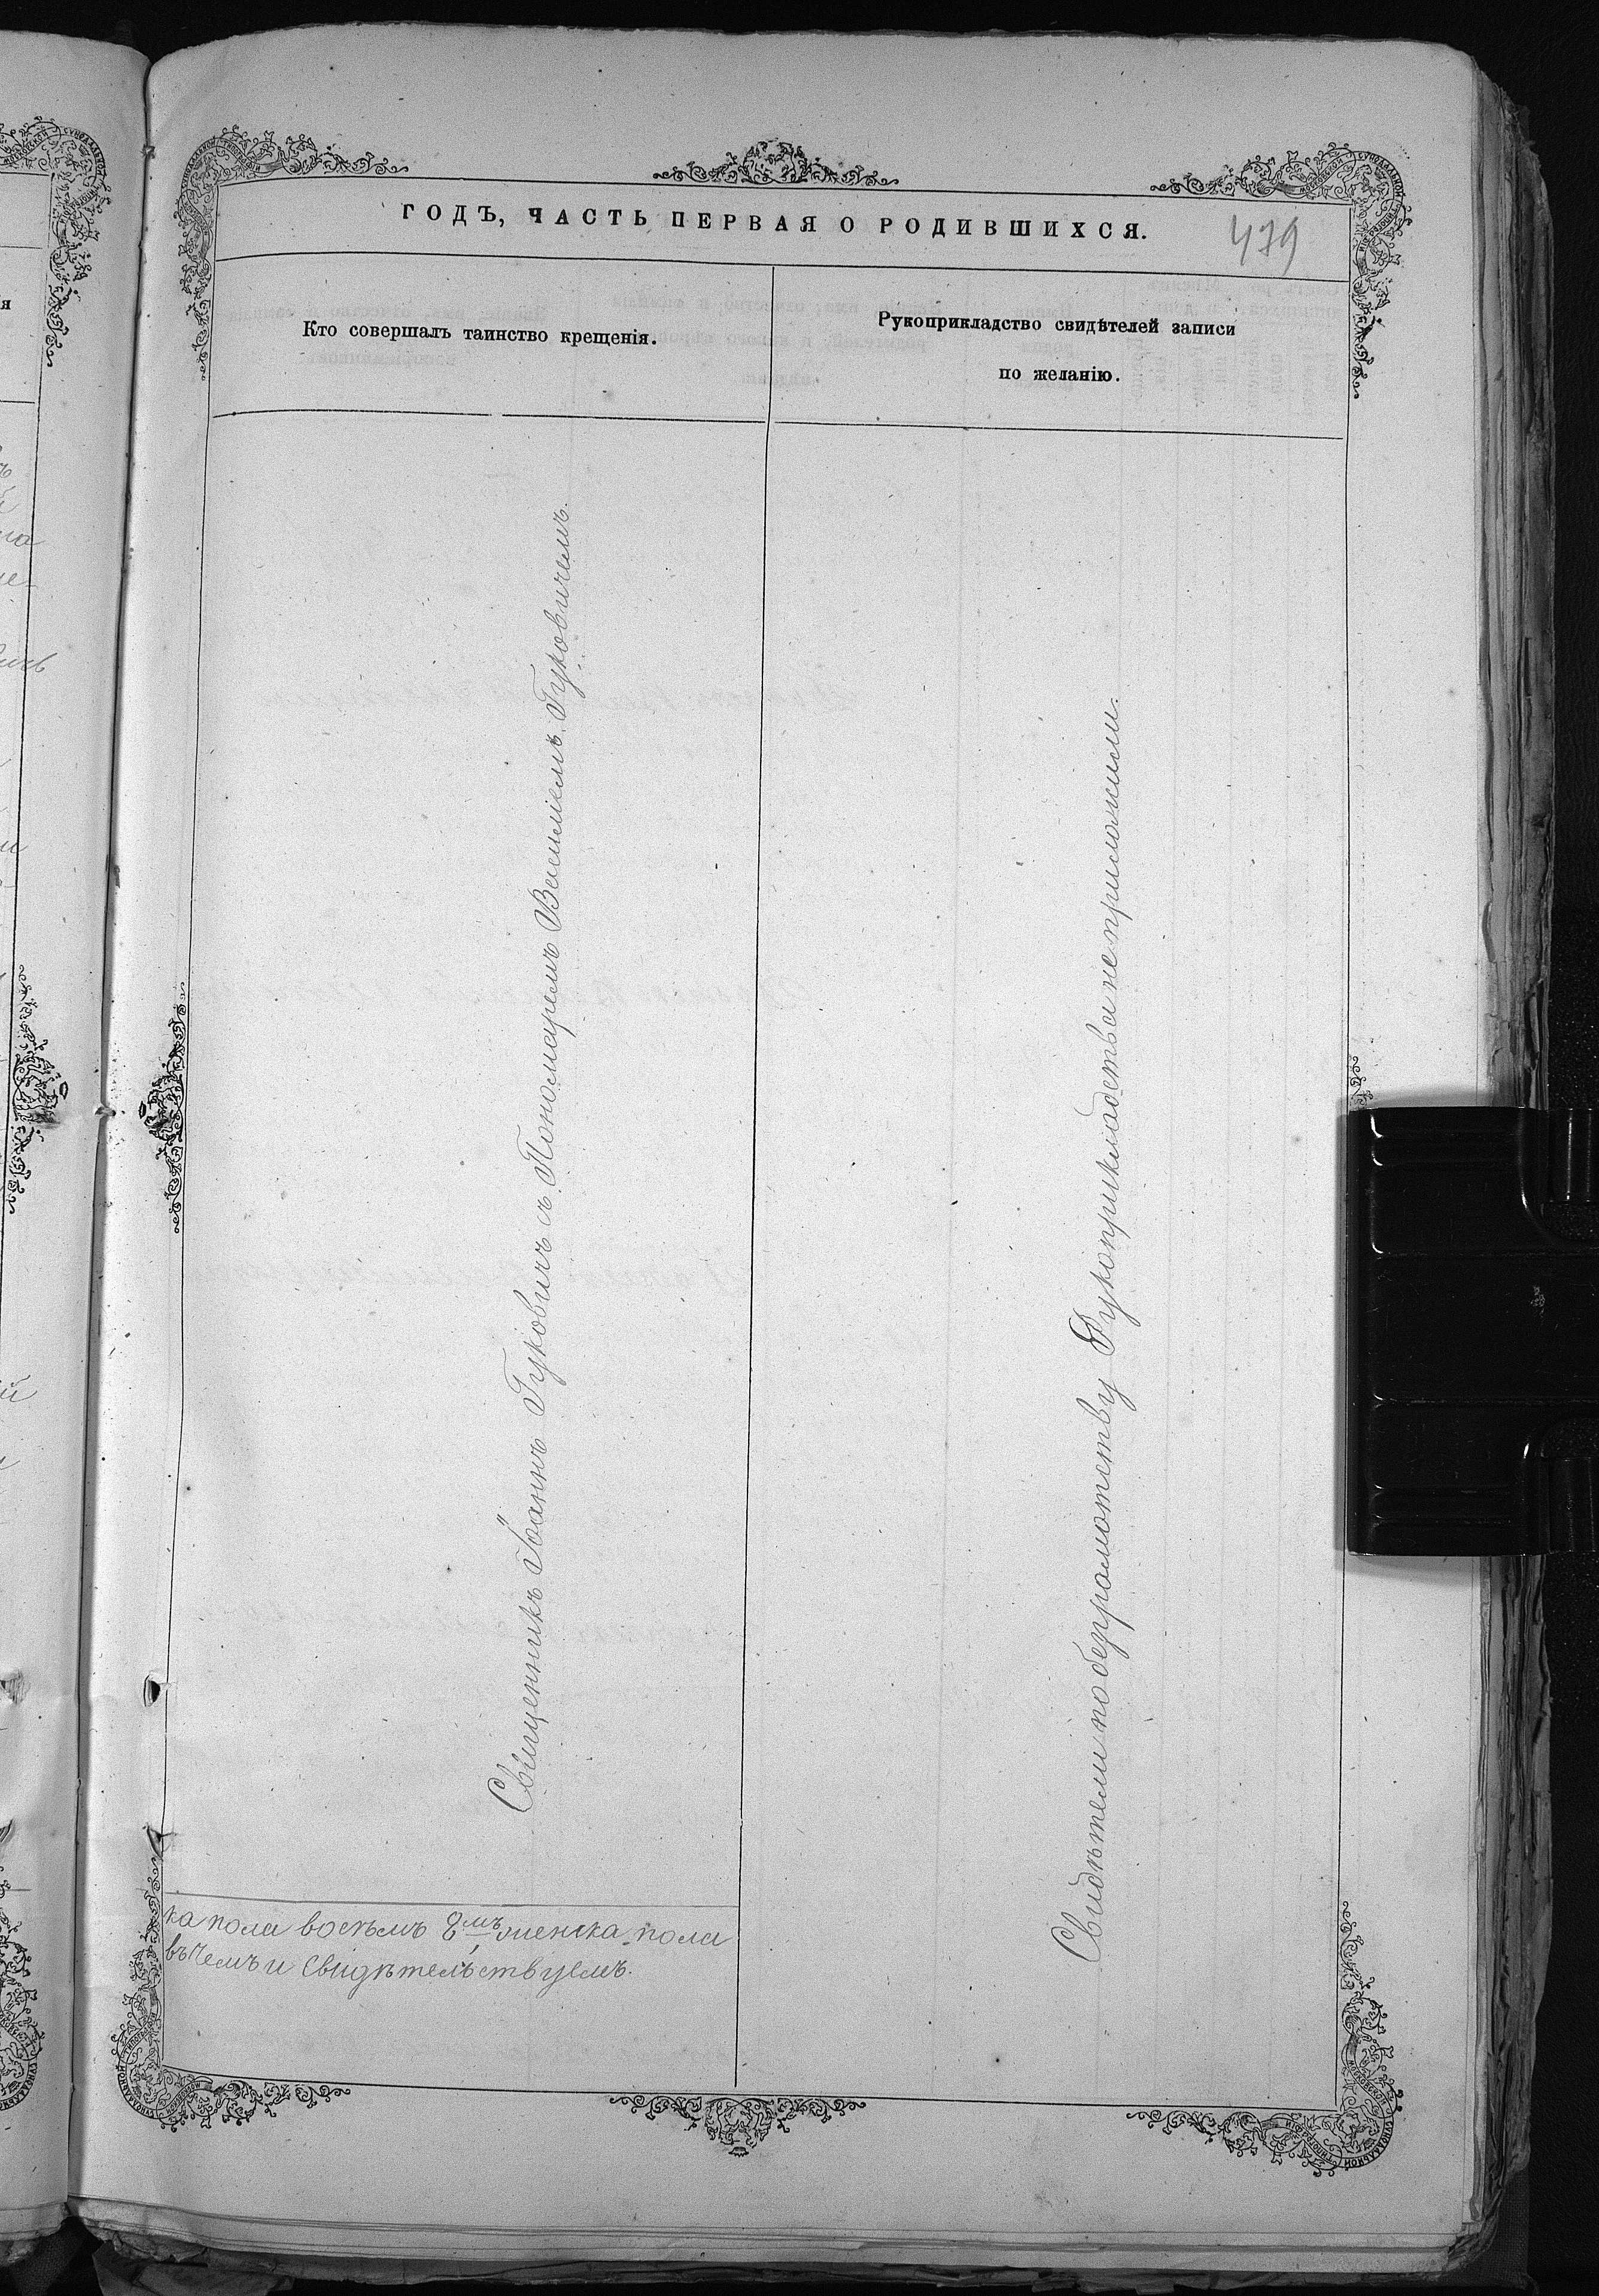 ГОДЪ, ЧАСТЬ ПЕРВАЯ О РОДИВШИХСЯ.
479
Кто совершалъ таинство крещенія.
Рукоприкладство свидѣтелей записи
по желанію.
Священникъ Іоаннъ Гуковичъ съ Пономаремъ Василемъ Гуковичемъ.
Свидѣтели по безграмотству Рукоприкладства не приложили.
ка пола восемъ 8мъ женска пола
въ чемъ и свидѣтельствуемъ.